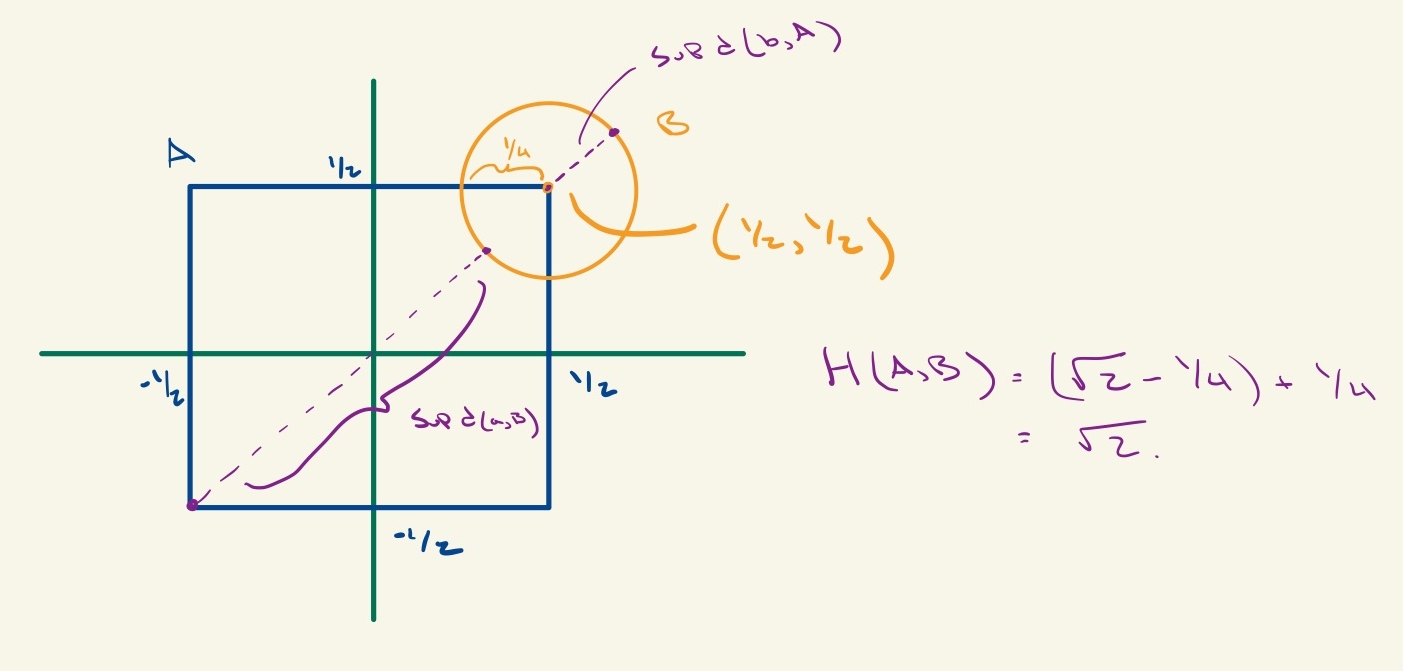 sup d(b,A)
B
A
1/2
1/4
(1/2, 1/2)
-1/2
1/2
sup d(a,B)
H(A,B) = (√2 - 1/4) + 1/4
= √2.
-1/2